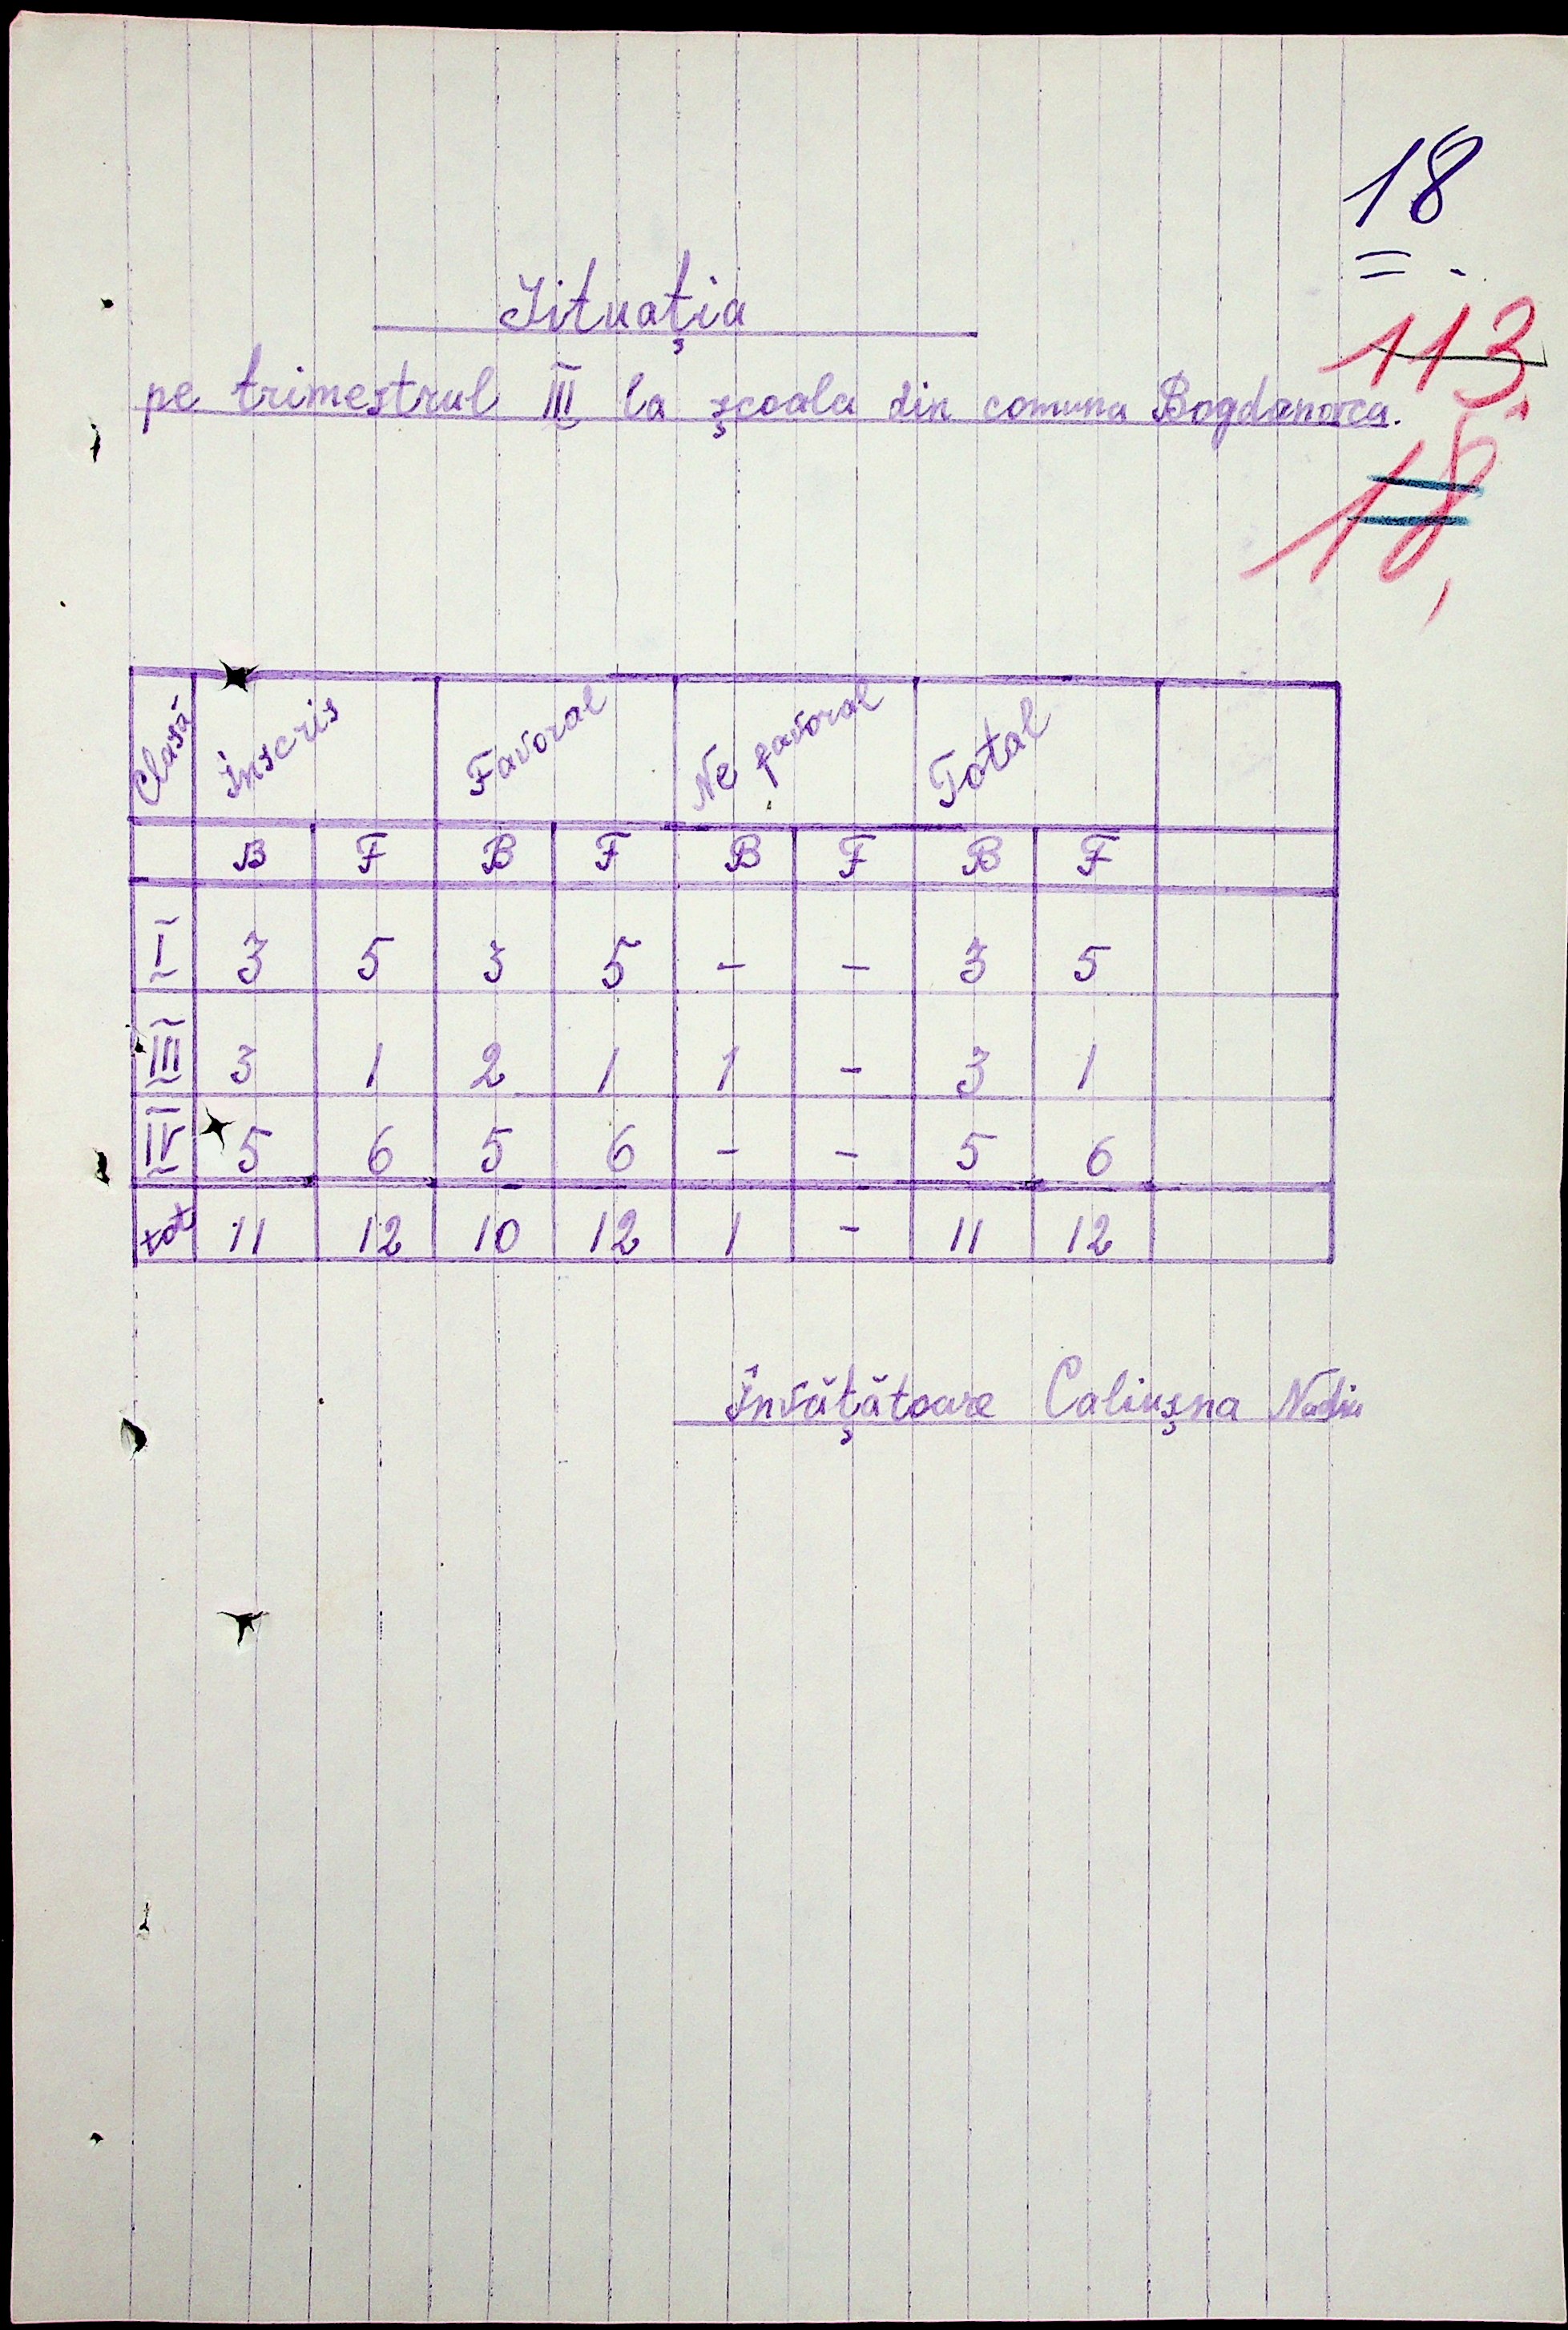 18
113
Situația
pe trimestrul III la școala din comuna Bogdanovca.
18
Clasă Înscris Favoral Ne favoral Total
B F B F B F B F
I 3 5 3 5 - - 3 5
III 3 1 2 1 1 - 3 1
IV 5 6 5 6 - - 5 6
tot 11 12 10 12 1 - 11 12
Învățătoare Caliușna Nadia